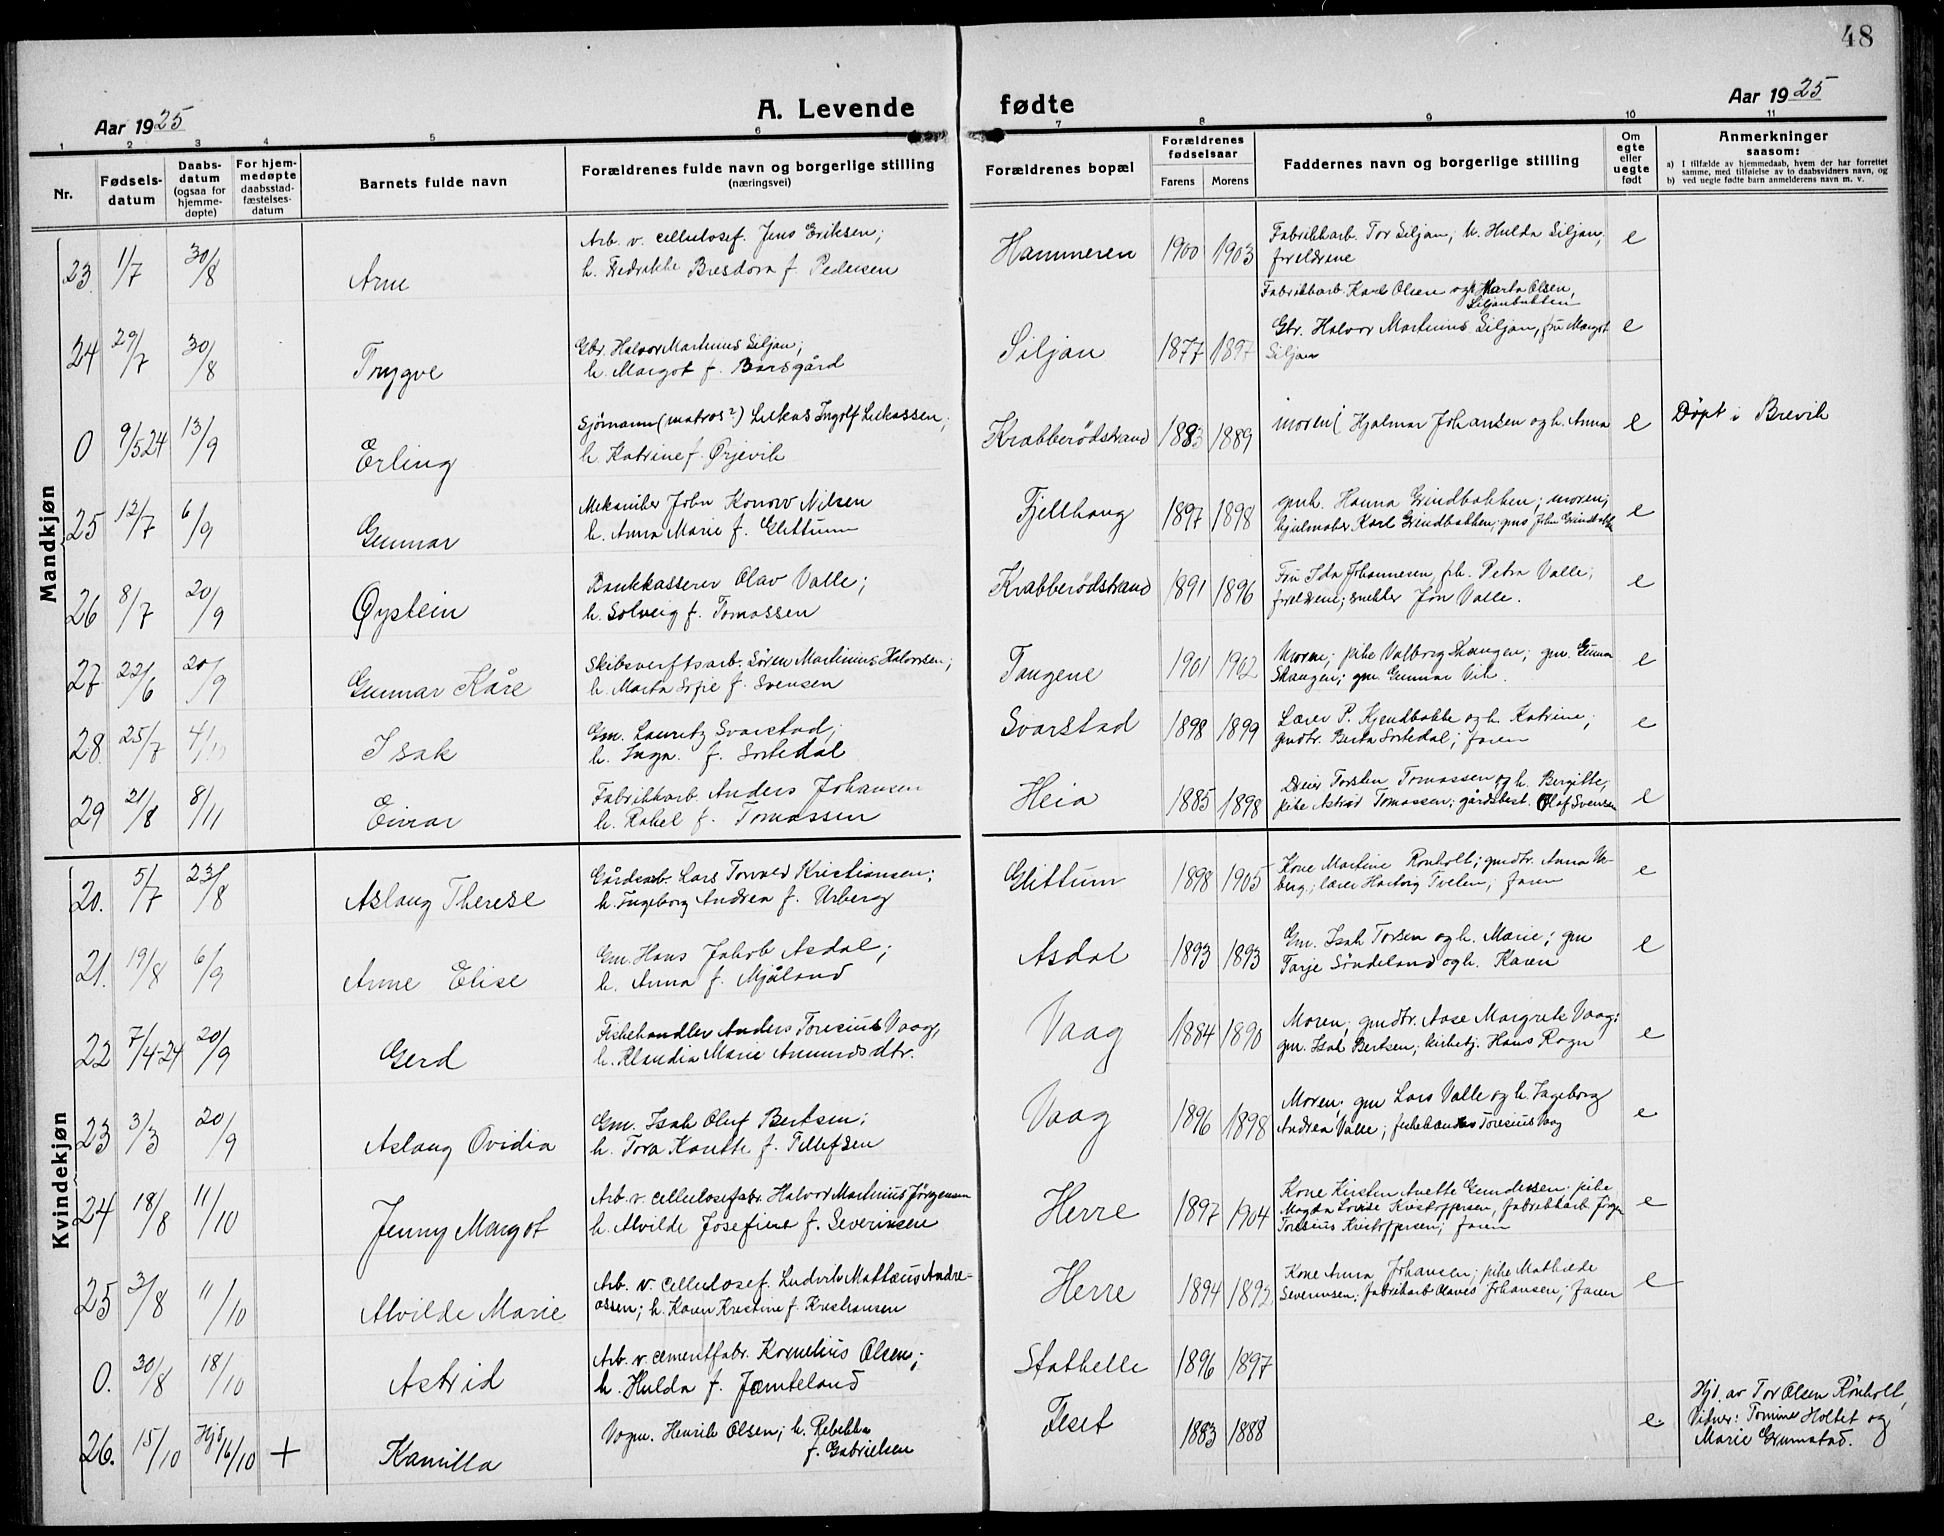 48
Aar 1925
A. Levende fødte
Aar 1925
1 2 3 4 5 6 7 8 9 10 11
Nr.
Fødsels-
datum
Daabs-
datum
(ogsaa for
hjemme-
døpte)
For hjem-
medøpte
daabsstad-
fæstelses-
datum
Barnets fulde navn
Forældrenes fulde navn og borgerlige stilling
(næringsvei)
Forældrenes bopæl
Forældrenes
fødselsaar
Farens Morens
Faddernes navn og borgerlige stilling
Om
egte
eller
uegte
født
Anmerkninger
saasom:
a) I tilfælde av hjemmedaab, hvem der har forrettet
samme, med tilføielse av to daabsvidners navn, og
b) ved uegte fødte barn anmelderens navn m. v.
Mandkjøn
23. 1/7 30/8 Arne
Arb. v. cellulosef. Jens Eriksen;
h. Fredrikke Bresdora f. Pedersen
Hammeren 1900 1903
Fabrikkarb. Tor Siljan, h. Hulda Siljan,
foreldrene
e
Fabrikkarb. Karl Olsen og h. Marta Olsen,
Siljanbakken
24 29/7 30/8 Trygve
Gbr. Halvor Martinius Siljan;
h. Margot f. Barsgård
Siljan 1877 1897
Gbr. Halvor Martinius Siljan, fru Margot
Siljan
e
0 9/5 24 13/9 Erling
Sjømann (matros?) Lukas Ingolf Lukassen,
h. Katrine f. Ørjevik
Krabberødstrand 1883 1889
moren; Hjalmar Johansen og h. Anna
e
Døpt i Brevik
25 12/7 6/9 Gunnar
Mekaniker John Konow Nilsen
h. Anna Marie f. Glittum
Fjellhaug 1897 1898
gmk. Hanna Grindbakken; moren;
hjulmaker Karl Grindbakken; John Grindbakken
e
26 8/7 20/9 Øystein
Bankkasserer Olav Valle;
h. Solveig f. Tomassen
Krabberødstrand 1891 1896
Fru Ida Johannesen, frk. Petra Valle;
foreldrene; snekker Jon Valle.
e
27 22/6 20/9 Gunnar Kåre
Skibsverftsarb. Søren Martinius Halvorsen;
h. Marta Sofie f. Svensen
Tangene 1901 1902
Moren; pike Valborg Skaugen; gm. Gunnar
Skaugen; gm. Gunnar Vik.
e
28. 25/7 4/10 Isak
Gm. Lauritz Svarstad;
h. Inga. f. Sortedal
Svarstad 1898 1899
Lærer P. Kjendbakke og h. Katrine;
gmdtr. Berta Sortedal; faren
e
29 21/8 8/11 Einar
Fabrikkarb. Anders Johansen
h. Rakel f. Tomassen
Heia 1885 1898
Torsten Tomassen og h. Bergitte;
pike Astrid Tomassen; gårdsbest. Olaf Svensen
e
Kvindekjøn
20. 5/7 23/8 Aslaug Therese
Gårdsarb. Lars Torvald Kristiansen;
h. Ingeborg Andrea f. Urberg
Glittum 1898 1905
Kone Martine Rønholt; gmdtr. Anna Ur-
berg; lærer Hartvig Tvelen; faren
e
21. 19/8 6/9 Anne Elise
Gm. Hans Jakob Asdal;
h. Anna f. Mjåland
Asdal 1893 1893
Gm. Isak Torsen og h. Marie; gm
Tarje Søndeland og h. Karen
e
22 7/4-24 20/9 Gerd
Fiskehandler Anders Toresius Vaag,
h. Klaudia Marie Amundsdtr.
Vaag 1884 1890
Moren; gmdtr. Aase Margrete Vaag;
gm. Isak Bertsen; kirketj. Hans Rogn
e
23 3/3 20/9 Aslaug Ovidia
Gm. Isak Oluf Bertsen;
h. Tora Kanette f. Tellefsen
Vaag 1896 1898
Moren; gm Lars Valle og h. Ingeborg
Andrea Valle; fiskehandler Toresius Vaag
e
24 18/8 11/10 Jenny Margot
Arb. v. cellulosefabr. Halvor Martinius Jörgensen
h. Alvilde Josefine f. Severinsen
Herre 1897 1904
Kone Kirsten Anette Gundersen pike
Magda Lovise Kristoffersen, fabrikkarb Jörgen
Toresius Kristoffersen; faren
e
25 3/8 11/10 Alvilde Marie
Arb. v. cellulosef. Ludvik Mattæus Andre-
assen; h. Karen Kristine f. Kristiansen
Herre 1894 1892
Kone Anna Johansen; pike Mathilde
Severinsen; fabrikarb Olaves Johansen; faren
e
0. 30/8 18/10 Astrid
Arb. v. cementfabr. Kornelius Olsen;
h. Hulda f. Jæmteland
Stathelle 1896 1897
26. 15/10 Hjd 16/10 + Kamilla
Vogn. Henrik Olsen; h. Rebekka
f. Gabrielsen
Feset 1883 1888
e
Hjd. av Tor Olsen Rönholt,
Vidner: Tomine Holtet og
Marie Grumstad.